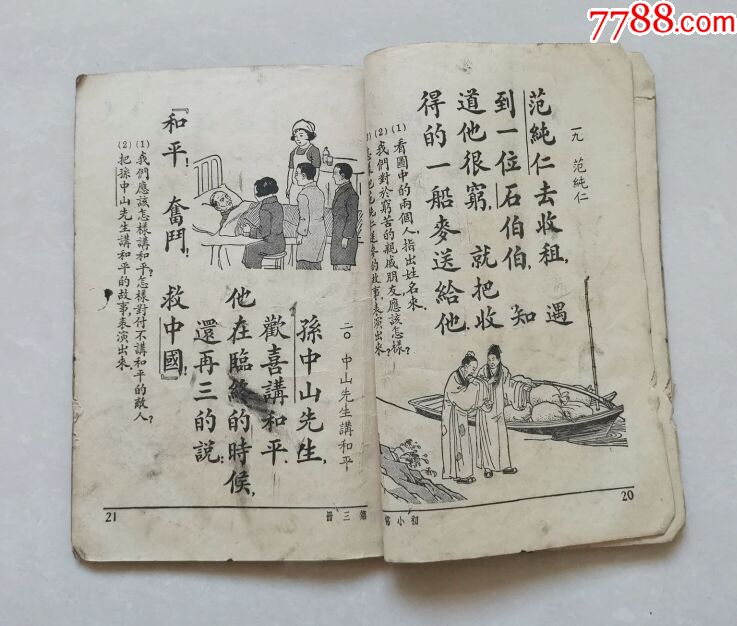 7788.com
一九 范純仁
范純仁去收租，遇
到一位石伯伯，知
道他很窮，就把收
得的一船麥送給他。
(1)看圖中的兩個人，指出姓名來。
(2)我們對於窮苦的親戚朋友，應該怎樣？
純仁送麥的故事，表演出來？
20
初小
二〇 中山先生講和平
孫中山先生，
歡喜講和平。
他在臨終的時候，
還再三的說：
『和平！奮鬥！救中國』！
(1)我們應該怎樣講和平？怎樣對付不講和平的敵人？
(2)把孫中山先生講和平的故事，表演出來。
第三冊
21